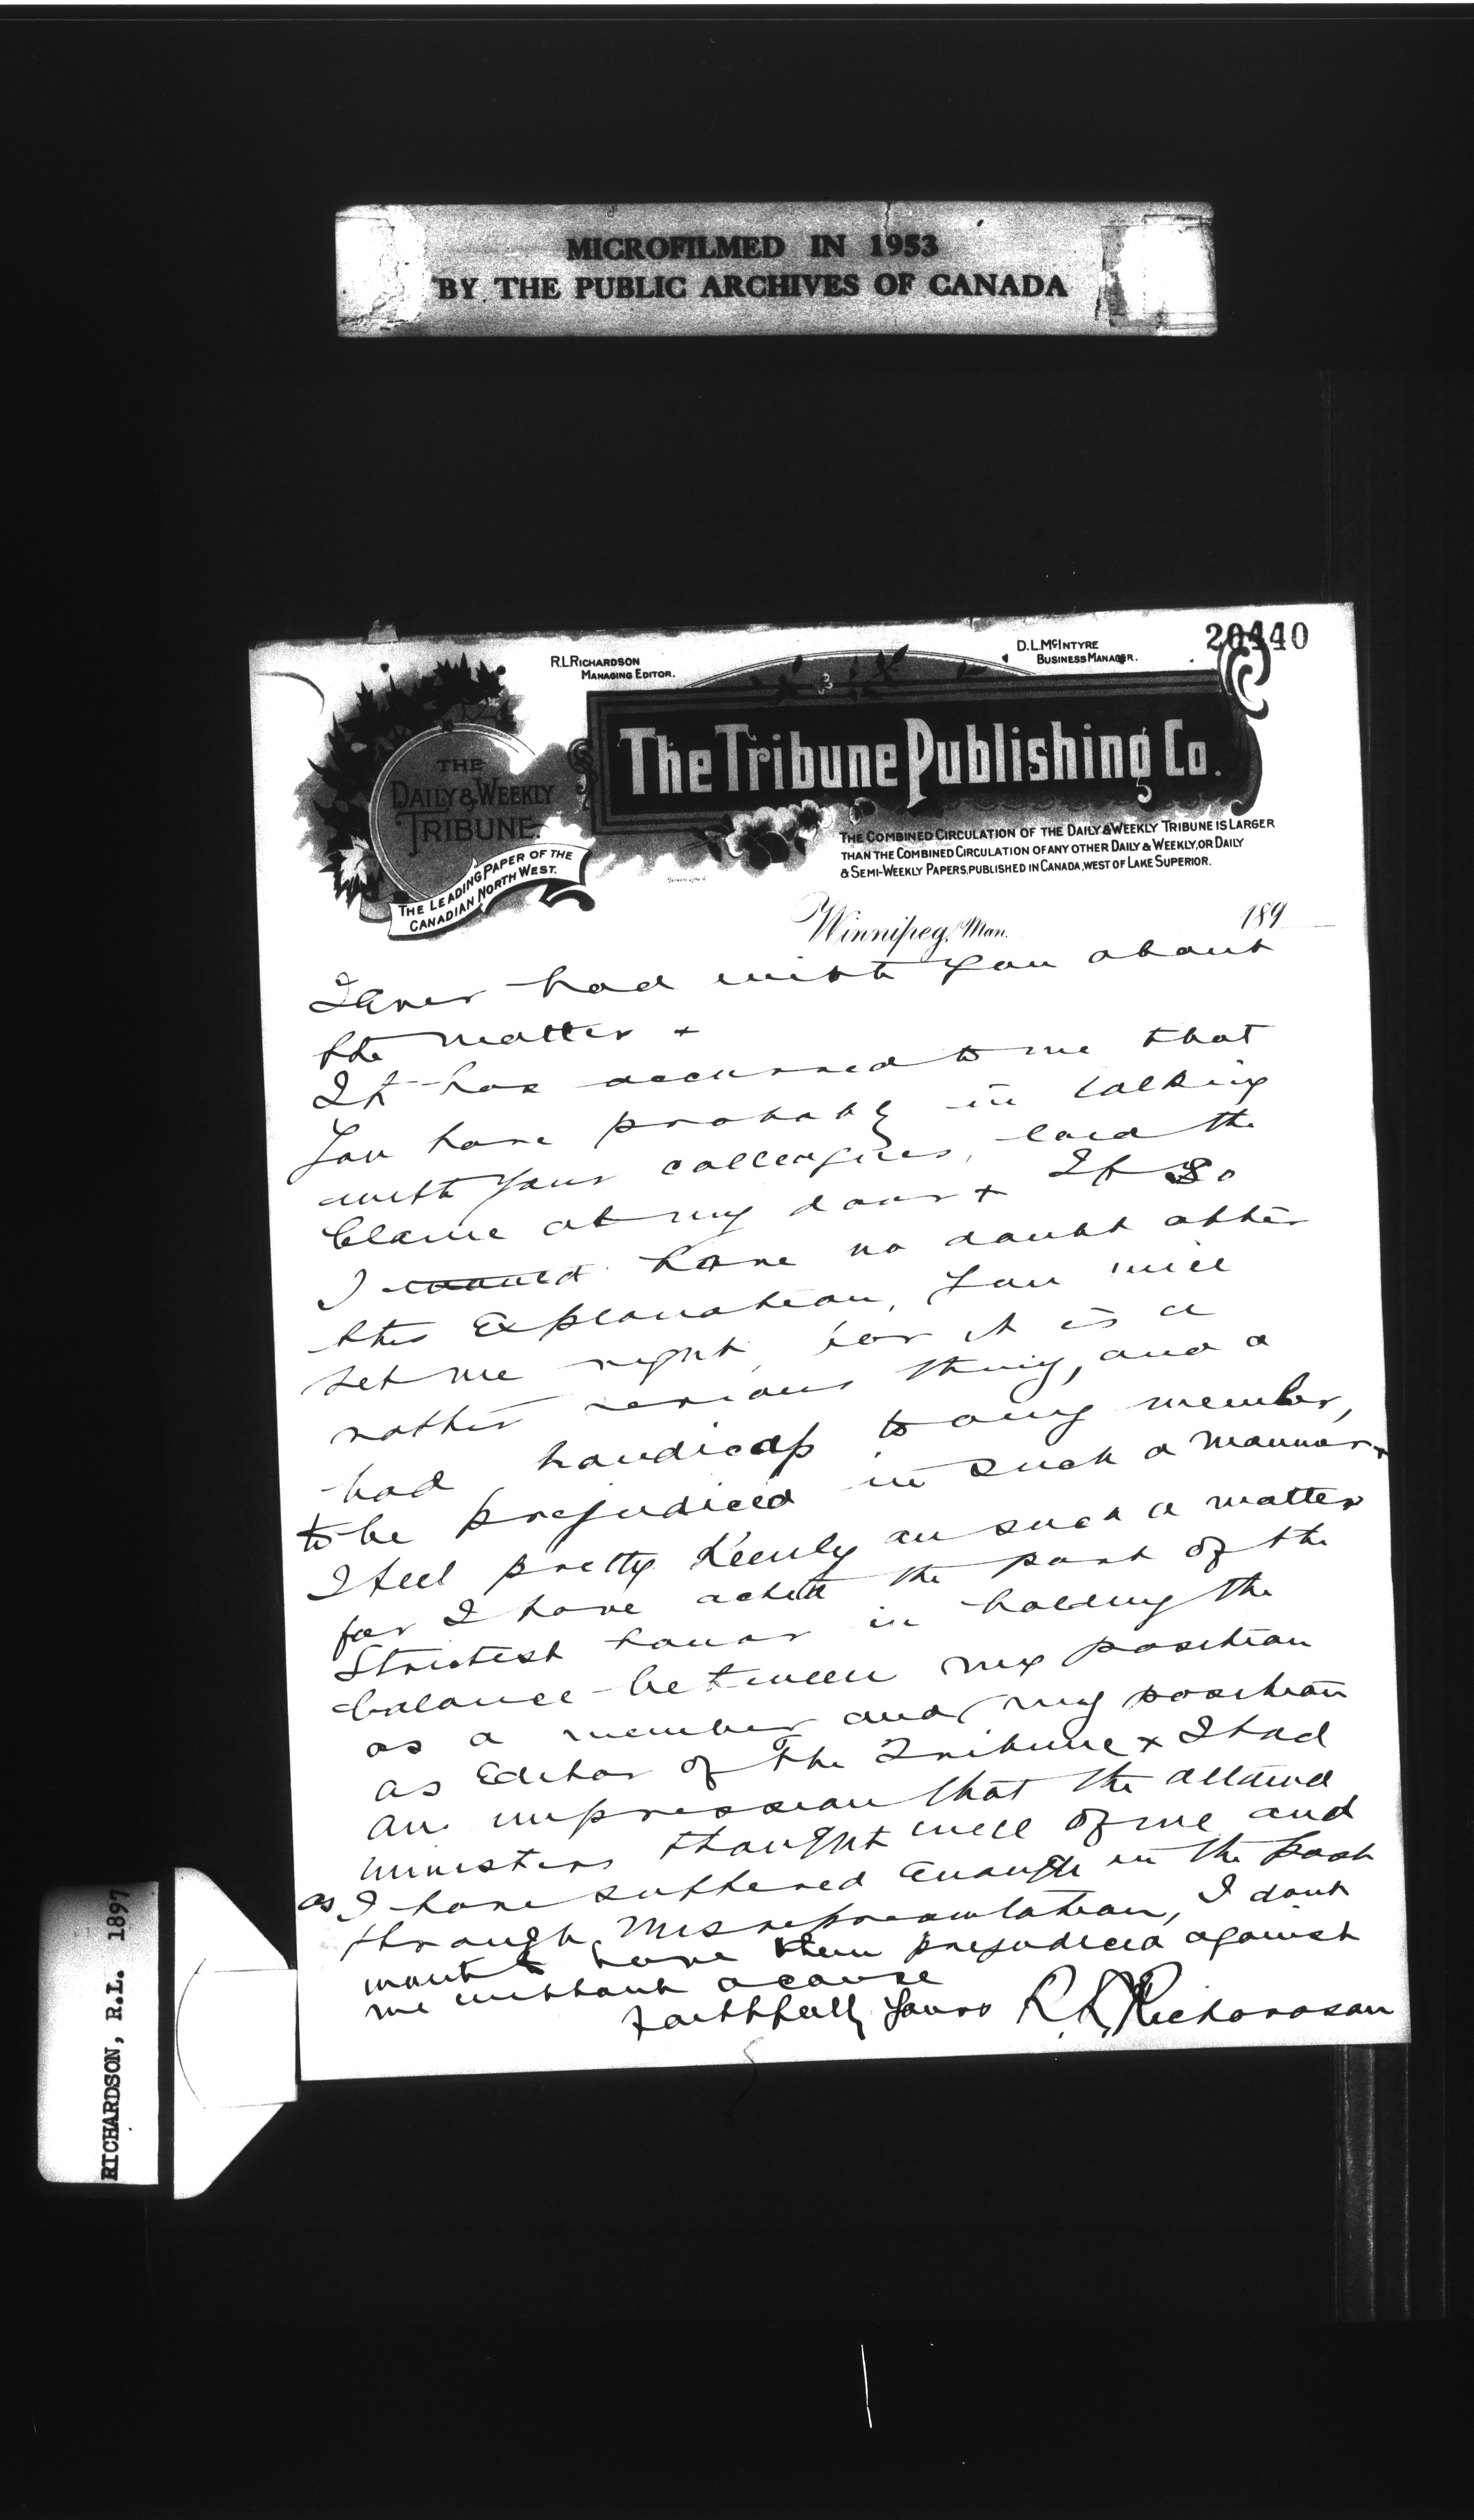 MICROFILMED IN 1953
BY THE PUBLIC ARCHIVES OF CANADA
20440
R.L.RICHARDSON
MANAGING EDITOR.
D.L.MCINTYRE
BUSINESS MANAGER.
THE
DAILY & WEEKLY
TRIBUNE.
THE LEADING PAPER OF THE
CANADIAN NORTH WEST.
The Tribune Publishing Co.
THE COMBINED CIRCULATION OF THE DAILY & WEEKLY TRIBUNE IS LARGER
THAN THE COMBINED CIRCULATION OF ANY OTHER DAILY & WEEKLY, OR DAILY
& SEMI-WEEKLY PAPERS, PUBLISHED IN CANADA, WEST OF LAKE SUPERIOR.
Winnipeg, Man. 189
I ever had with you about
the matter +
It has occurred to me that
You have probably in talking
with your colleagues, laid the
blame at my door + If so
I would have no doubt after
this Explanation, You will
set me right, for it is a
rather serious thing, and a
bad handicap to any member,
to be prejudiced in such a manner +
I feel pretty Keenly on such a matter
for I have acted the part of the
Strictest honor in holding the
balance between my position
as a member and my position
as Editor of The Tribune + I had
an impression that the
ministers thought well of me and
as I have suffered Enough in the past
through Misrepresentation, I dont
want to have them prejudiced against
me without a cause
Faithfully Yours R.L. Richardson
RICHARDSON, R.L. 1897